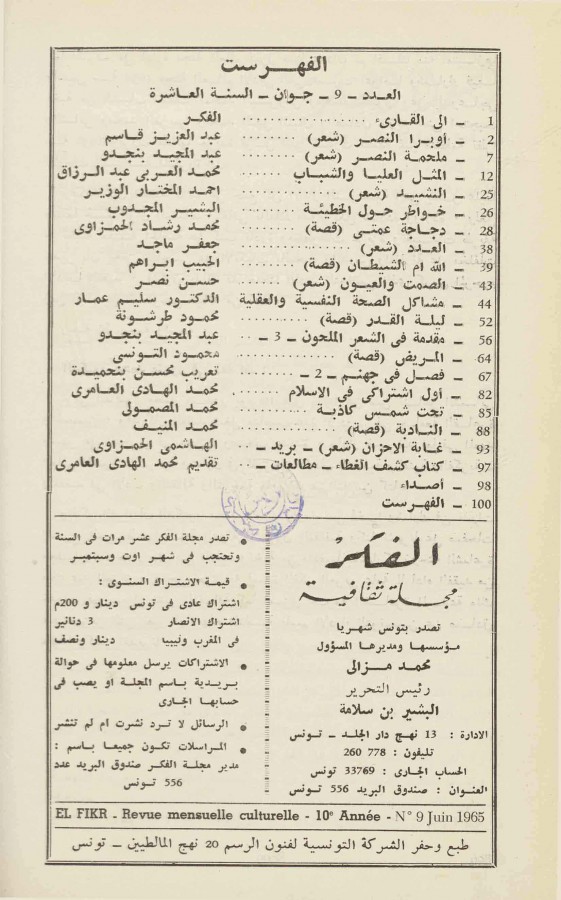 الفهرست
العدد - 9 - جوان - السنة العاشرة
1 - الى القارىء .......... الفكر
2 - أوبرا النصر (شعر) .......... عبد العزيز قاسم
7 - ملحمة النصر (شعر) .......... عبد المجيد بنجدو
12 - المثل العليا والشباب .......... محمد العربى عبد الرزاق
25 - النشيد (شعر) .......... احمد المختار الوزير
26 - خواطر حول الخطيئة .......... البشير المجدوب
28 - دجاجة عمتى (قصة) .......... محمد رشاد الحمزاوى
38 - العدد (شعر) .......... جعفر ماجد
39 - الله ام الشيطان (قصة) .......... الحبيب ابراهم
43 - الصمت والعيون (شعر) .......... حسن نصر
44 - مشاكل الصحة النفسية والعقلية الدكتور سليم عمار
52 - ليلة القدر (قصة) .......... محمود طرشونة
56 - مقدمة فى الشعر الملحون - 3 - .. عبد المجيد بنجدو
64 - المريض (قصة) .......... محمود التونسى
67 - فصل فى جهنم - 2 - .......... تعريب محسن بنحميدة
82 - أول اشتراكى فى الاسلام .......... محمد الهادى العامرى
85 - تحت شمس كاذبة .......... محمد المصمولى
88 - النادبة (قصة) .......... محمد المنيف
93 - غابة الاحزان (شعر) - بريد - .. الهاشمى الحمزاوى
97 - كتاب كشف الغطاء - مطالعات - .. تقديم محمد الهادى العامرى
98 - أصداء
100 - الفهرست
الفكر
مجلة ثقافية
تصدر بتونس شهريا
مؤسسها ومديرها المسؤول
محمد مزالى
رئيس التحرير
البشير بن سلامة
الادارة : 13 نهج دار الجلد - تونس
تليفون : 778 260
الحساب الجارى : 33769 تونس
العنوان : صندوق البريد 556 تونس
• تصدر مجلة الفكر عشر مرات فى السنة
وتحتجب فى شهر اوت وسبتمبر
• قيمة الاشتراك السنوى :
اشتراك عادى فى تونس دينار و 200م
اشتراك الانصار 3 دنانير
فى المغرب وليبيا دينار ونصف
• الاشتراكات يرسل معلومها فى حوالة
بريدية باسم المجلة او يصب فى
حسابها الجارى
• الرسائل لا ترد نشرت ام لم تنشر
• المراسلات تكون جميعا باسم :
مدير مجلة الفكر صندوق البريد عدد
556 تونس
EL FIKR - Revue mensuelle culturelle - 10e Année - N° 9 Juin 1965
طبع وحفر الشركة التونسية لفنون الرسم 20 نهج المالطيين - تونس